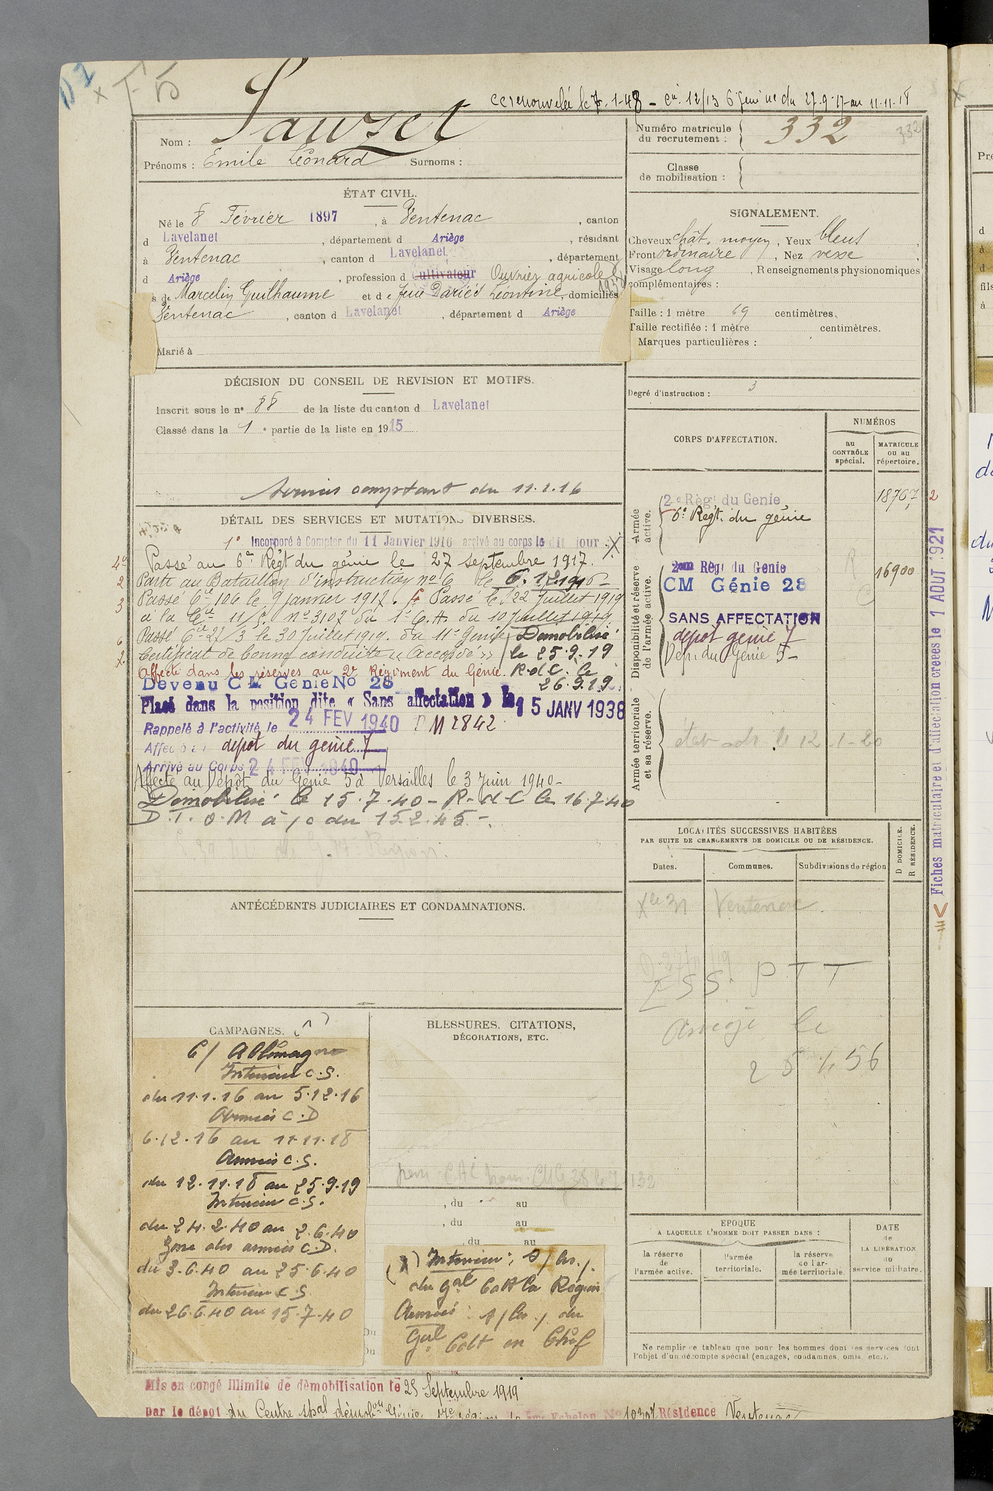 Sauzet
cc renouvelée le 7.1.48 – Cie 12/13 6 Génie du 27.9.17 au 11.11.18
Nom :
Prénoms : Emile Léonard Surnoms :
Numéro matricule du recrutement : 332
332
Classe de mobilisation :
ÉTAT CIVIL.
Né le 8 Février 1897, à Ventenac, canton
d Lavelanet, département d Ariège, résidant
à Ventenac, canton d Lavelanet, département
d Ariège, profession d Cultivateur Ouvrier agricole
s de Marcelin Guilhaume et de feue Dariès Léontine, domiciliés
Ventenac, canton d Lavelanet, département d Ariège
Marié à
SIGNALEMENT.
Cheveux chât. moyen, Yeux bleus
Front ordinaire, Nez vexe
Visage long, Renseignements physionomiques
complémentaires :
Taille : 1 mètre 69 centimètres.
Taille rectifiée : 1 mètre centimètres.
Marques particulières :
Degré d'instruction : 3
DÉCISION DU CONSEIL DE REVISION ET MOTIFS.
Inscrit sous le n° 88 de la liste du canton d Lavelanet
Classé dans la 1e partie de la liste en 1915
Services comptant du 11.1.16
DÉTAIL DES SERVICES ET MUTATIONS DIVERSES.
1° Incorporé à Compter du 11 Janvier 1916 arrivé au corps le dit jour
Passé au 6e Régt du génie le 27 septembre 1917.
Parti au Bataillon d'instruction n° 6 le 6.12.1916
Passé Cie 106 le 9 janvier 1917. Passé le 22 Juillet 1919
Passé Cie 22/3 le 30 Juillet 1919. du 11e Génie Démobilisé
Certificat de bonne conduite « Accordé » le 25.9.19
Affecté dans les réserves au 2e Régiment du Génie. R.d.C. le
26.9.19.
Devenu C M Génie No 28
Placé dans la position dite « Sans affectation » le 15 JANV 1938
Rappelé à l'activité le 24 FEV 1940 M 2842
Affecté au dépôt du génie 7
Arrivé au Corps 24 FEV 1940
Affecté au Dépôt du Génie 5 à Versailles le 3 Juin 1940 –
Démobilisé le 15.7.40 – R.d.C le 16.7.40
D.T.O.M à/c du 15.2.45 –
CORPS D'AFFECTATION.
NUMÉROS
au CONTRÔLE spécial.
MATRICULE ou au répertoire.
Armée active.
2e Régt du Genie
6e Régt. du génie
18767
Disponibilité et réserve de l'armée active.
2me Régt du Genie
16900
CM Génie 28
SANS AFFECTATION
dépôt génie 7
Dépt du Génie 5 –
Armée territoriale et sa réserve.
Fiches matriculaire et d'affectation créées le 1 AOUT 1921
LOCALITÉS SUCCESSIVES HABITÉES
PAR SUITE DE CHANGEMENTS DE DOMICILE OU DE RÉSIDENCE.
Dates. Communes. Subdivisions de région
D DOMICILE.
R RÉSIDENCE.
Xbre 31 Ventenac.
ESS. PTT
Ariège le
25.1.56
ANTÉCÉDENTS JUDICIAIRES ET CONDAMNATIONS.
CAMPAGNES.
C/ Allemagne
Intérieur C.S.
du 11.1.16 au 5.12.16
Armées C.D
6.12.16 au 11.11.18
Armées C.S.
du 12.11.18 au 25.9.19
Intérieur C.S.
du 24.2.40 au 2.6.40
Zone des armées C.D.
du 3.6.40 au 25.6.40
Intérieur C.S
du 26.6.40 au 15.7.40
BLESSURES, CITATIONS,
DÉCORATIONS, ETC.
, du au
, du au
, du au
(X) Intérieur :
du Gal Cdt la Région
Armées : du
Gal Cdt en Chef
EPOQUE
A LAQUELLE L'HOMME DOIT PASSER DANS :
la réserve de l'armée active.
l'armée territoriale.
la réserve de l'armée territoriale.
DATE de LA LIBÉRATION du service militaire.
Ne remplir ce tableau que pour les hommes dont les services font
l'objet d'un décompte spécial (engagés, condamnés, omis, etc.).
Mis en congé illimité de démobilisation le 25 Septembre 1919
par le dépôt du Centre spal démob Génie, 17e région Echelon No 10307 Résidence Ventenac